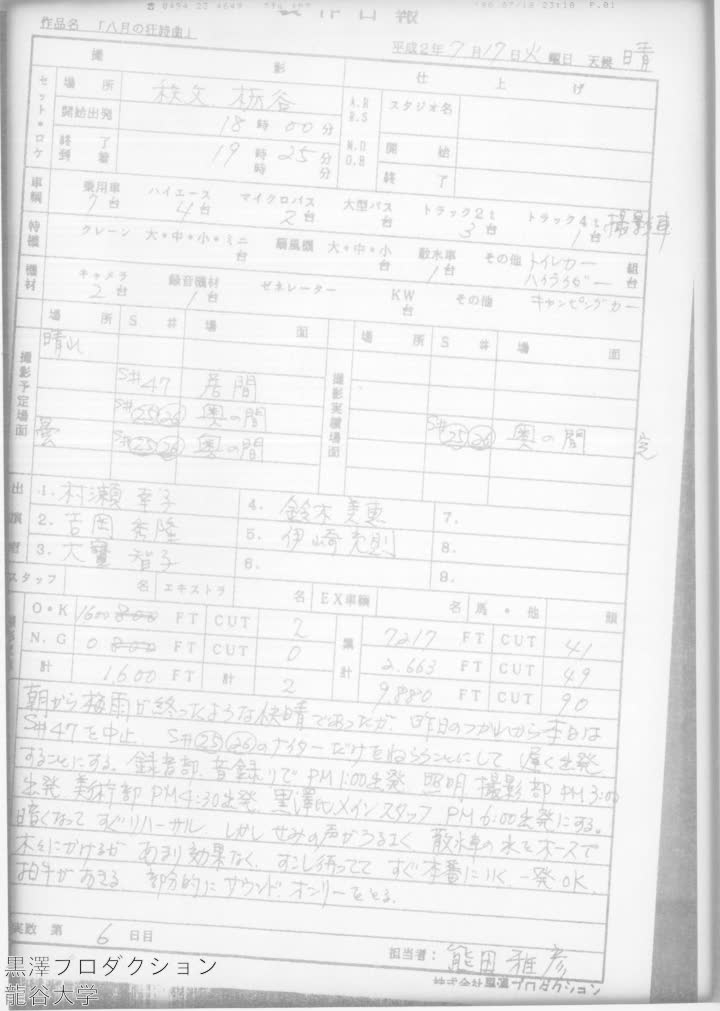 0494 23 4649 '90/07/18 23:10 P.01
製作日報
作品名 「八月の狂詩曲」
平成2年7月17日火曜日 天候 晴
撮 影 仕 上 げ
セット・ロケ 場所 秩父 栃谷 A.R R.S スタジオ名
開始出発 18時00分 M.O D.B 開始
終了到着 19時25分 終了
時 分
車輌 乗用車 7台 ハイエース 4台 マイクロバス 2台 大型バス 台 トラック2t 3台 トラック4t 1台 撮影車
特機 クレーン 大・中・小・ミニ 台 扇風機 大・中・小 台 散水車 1台 その他 トイレカー 組 台
ハイライダー
機材 キャメラ 2台 録音機材 1台 ゼネレーター KW 台 その他 キャンピングカー
場所 S# 場面 場所 S# 場面
撮影予定場面 撮影実績場面
晴れ
S#47 居間
S#㉕㉖ 奥の間 S#㉕㉖ 奥の間 完
曇 S#㉕㉖ 奥の間
出演者 1. 村瀬幸子 4. 鈴木美恵 7.
2. 吉岡秀隆 5. 伊崎充則 8.
3. 大寶智子 6. 9.
スタッフ 名 エキストラ 名 EX車輌 名 馬・他 頭
O・K 1600 800 FT CUT 2 累計 7217 FT CUT 41
N.G 0 800 FT CUT 0 2.663 FT CUT 49
計 1,600 FT 計 2 9880 FT CUT 90
朝から梅雨が終ったような快晴であったが 昨日のつかれから本日は
S#47を中止、S#㉕㉖のナイターだけをねらうことにして、遅く出発
することにする。録音部、音録りでPM1:00出発、照明 撮影部 PM3:00
出発 美術部 PM4:30出発、黒澤氏メインスタッフ PM6:00出発にする。
暗くなって すぐリハーサル、しかしせみの声がうるさく 散水車の水をホースで
木々にかけるが あまり効果なく、すこし待ってて すぐ本番にいく、一発OK、
拍手がおきる 部分的にサウンドオンリーをとる。
実数 第 6 日目
担当者: 熊田雅彦
株式会社黒澤プロダクション
黒澤プロダクション
龍谷大学